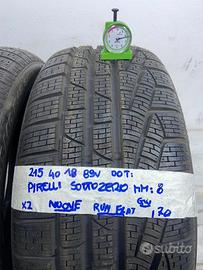 215 40 18 89V DOT:
PIRELLI SOTTOZERO MM: 8
X2 NUOVE RUN FLAT
120
subito